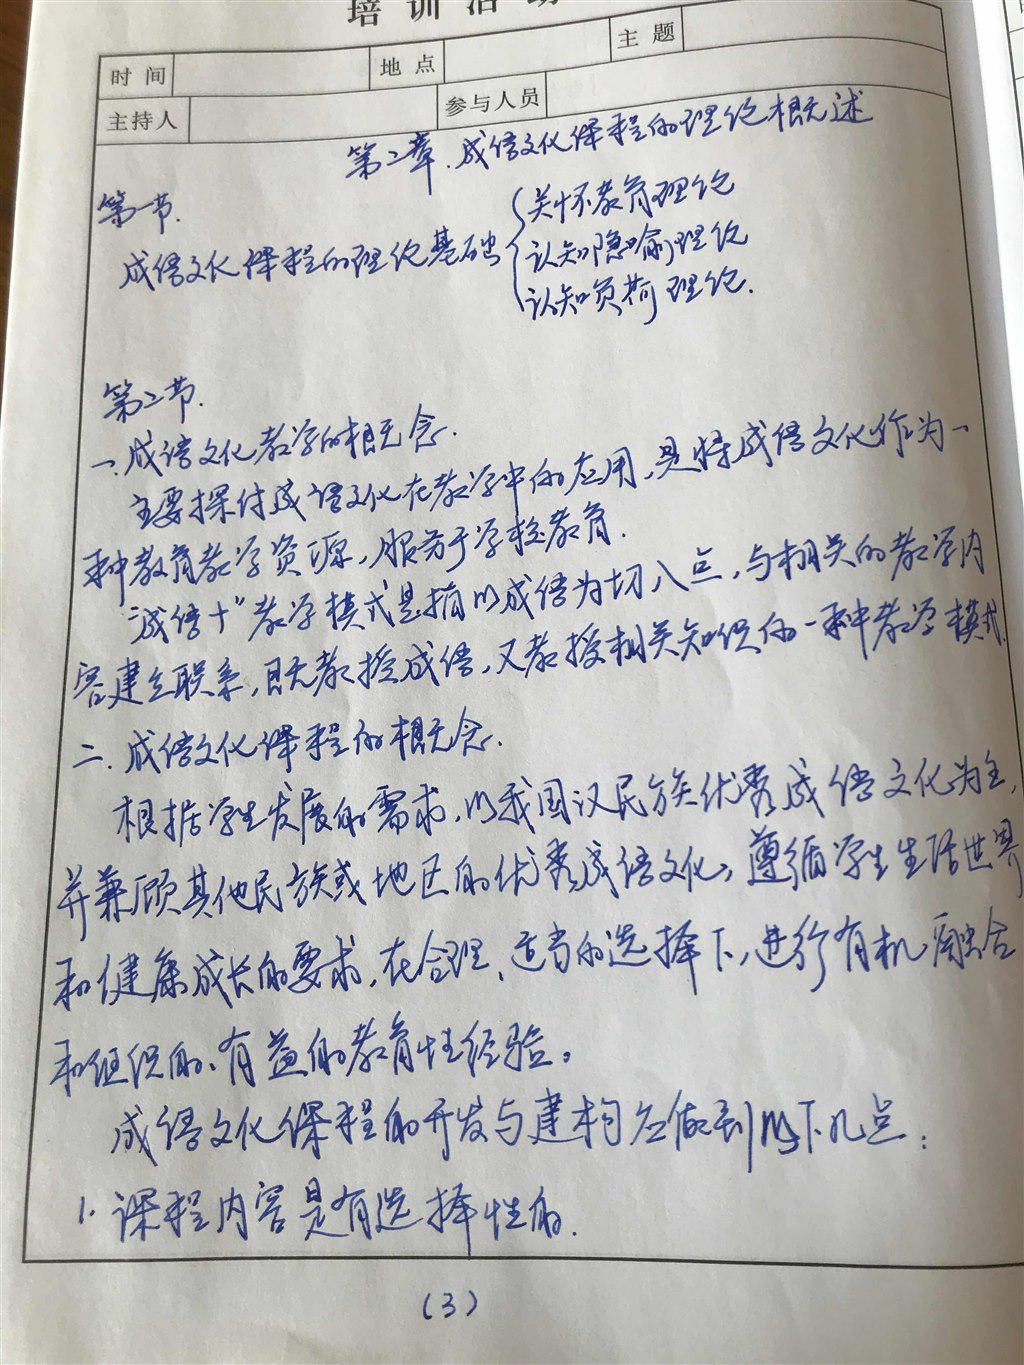 培训活动
时间 地点 主题
主持人 参与人员
第二章.成语文化课程的理论概述
第一节.
成语文化课程的理论基础
关怀教育理论
认知隐喻理论
认知负荷理论.
第二节.
一.成语文化教学的概念.
主要探讨成语文化在教学中的应用,是将成语文化作为一
种教育教学资源,服务于学校教育.
"成语+"教学模式是指以成语为切入点,与相关的教学内
容建立联系,既教授成语,又教授相关知识的一种教学模式.
二.成语文化课程的概念.
根据学生发展的需求,以我国汉民族优秀成语文化为主,
并兼顾其他民族或地区的优秀成语文化,遵循学生生活世界
和健康成长的要求,在合理、适当的选择下,进行有机融合
和组织的、有益的教育性经验。
成语文化课程的开发与建构应做到以下几点:
1.课程内容是有选择性的.
(3)